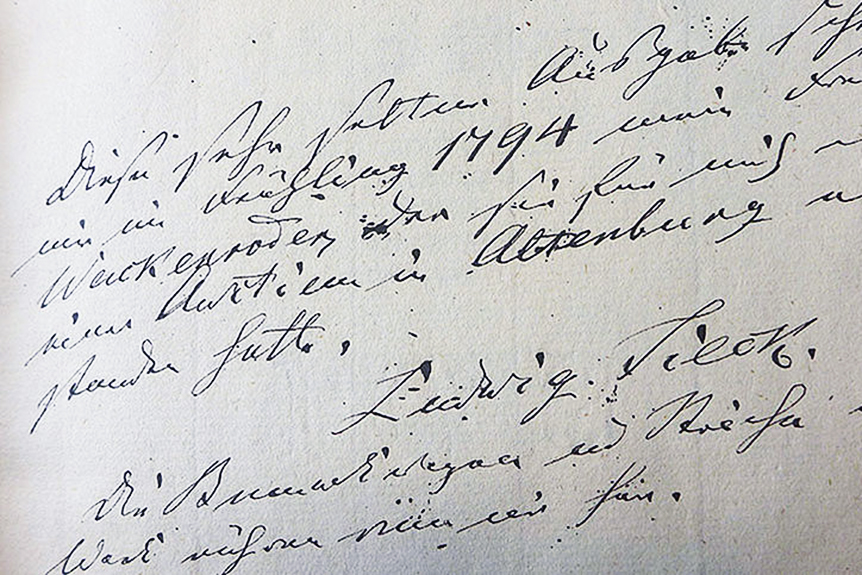 Diese sehr seltne Ausgabe
mir im Frühling 1794 mein
Wackenroder, der sie für mich
einer Auktion in Altenburg
standen hatte.
Ludwig Tieck.
Die Bemerkungen und Striche
Werk rühren von mir her.